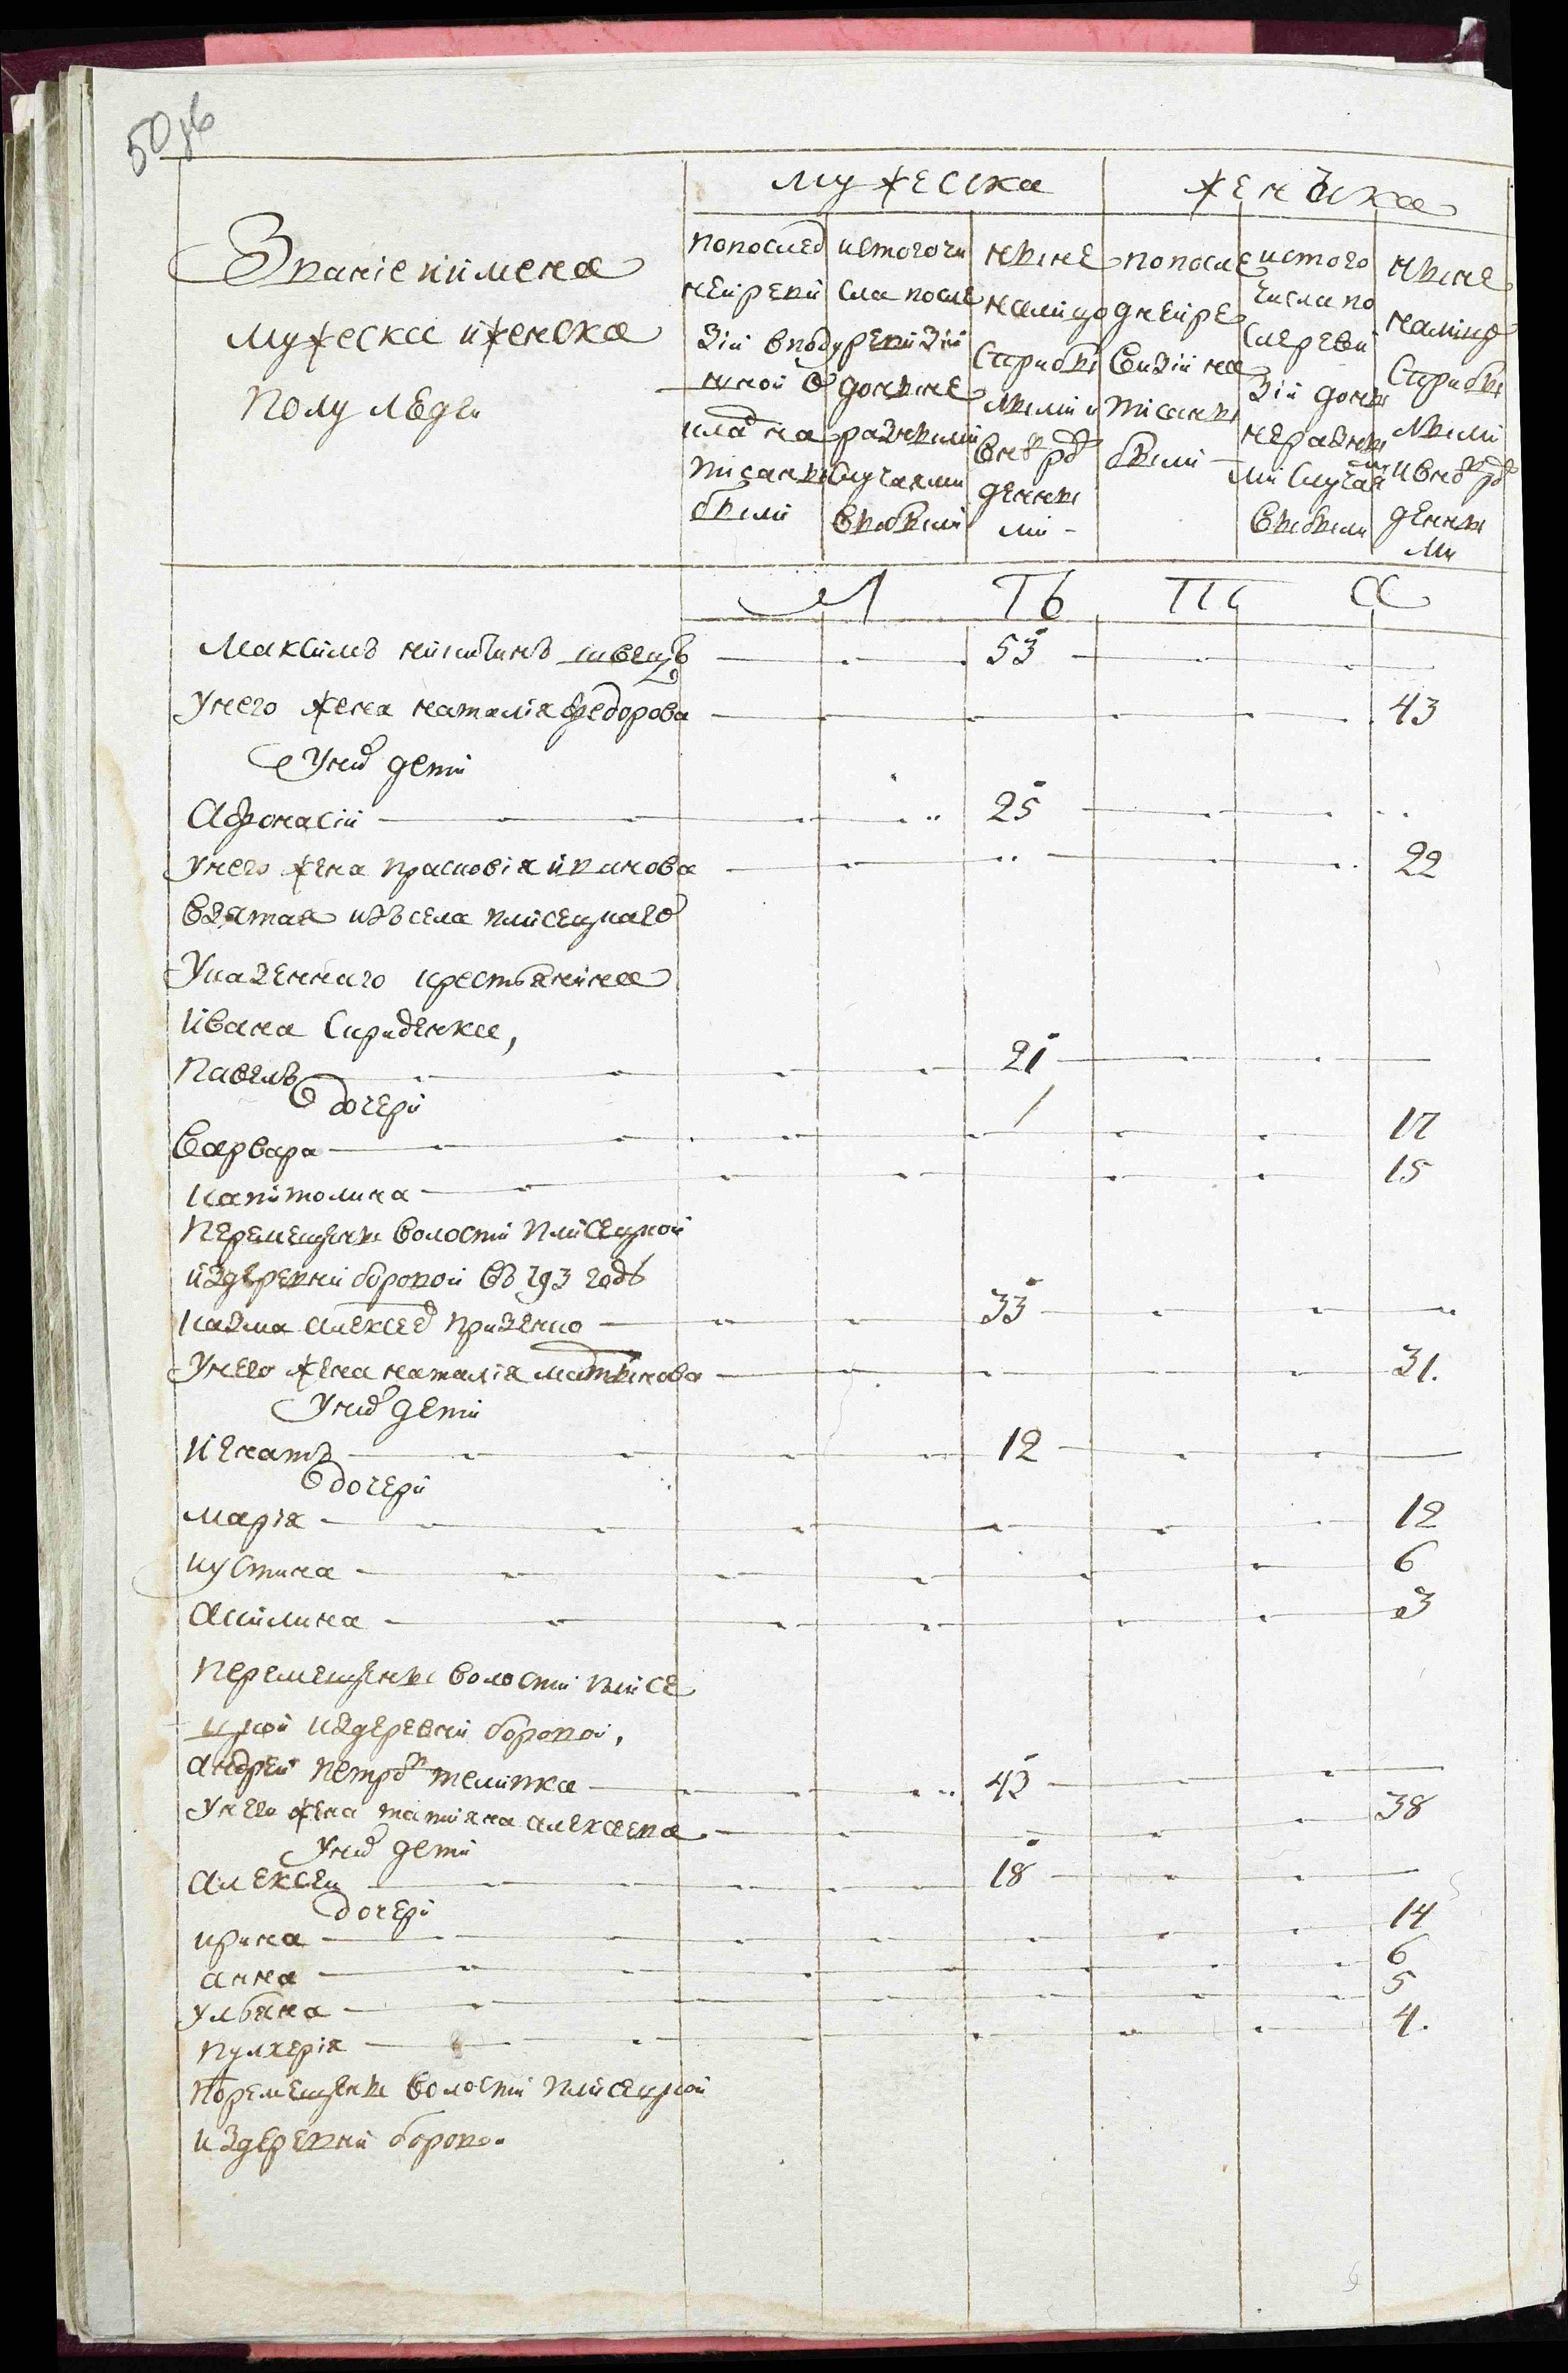 50 об
Званіе и имена
мужеска и женска
полу людей
мужеска
женъска
по послед
ней реви
зій в поду
шной о
клад на
писаны
были
ис того чи
сла после
ревизій
до ныне
разными
случаями
выбыли
ныне
на лицо
с прибы
лыми и
внов рож
денны
ми
по после
дней ре
визій на
писаны
были
ис того
числа по
сле реви
зій до ны
не разны
ми случая
ми
выбыли
ныне
на лице
с прибы
лыми
и внов рож
денны
ми
Л Ѣ Т А
Максимъ швецъ 53
У него жена наталія федорова 43
У них дети
Афонасій 25
У него жена прасковія иванова 22
взятая изъ села плисецкаго
Указенного крестьянина
Ивана Свириденка,
Павелъ 21
дочери
Варвара 17
капитолина 15
Перемещены волости плисецкой
из деревни боровой въ 793 годѣ
Казма алексеев 33
У него жена наталія 31.
У них дети
Игнатъ 12
дочери
марія 12
иустина 6
акилина 3
перемещены волости плисе
цкой из деревни боровой,
андрей петров телипка 43
У него жена татияна алексеева 38
У них дети
алексей 18
дочери
ирина 14
анна 6
ульяна 5
пулхерія 4.
Перемещены волости плисецкой
из деревни боровой